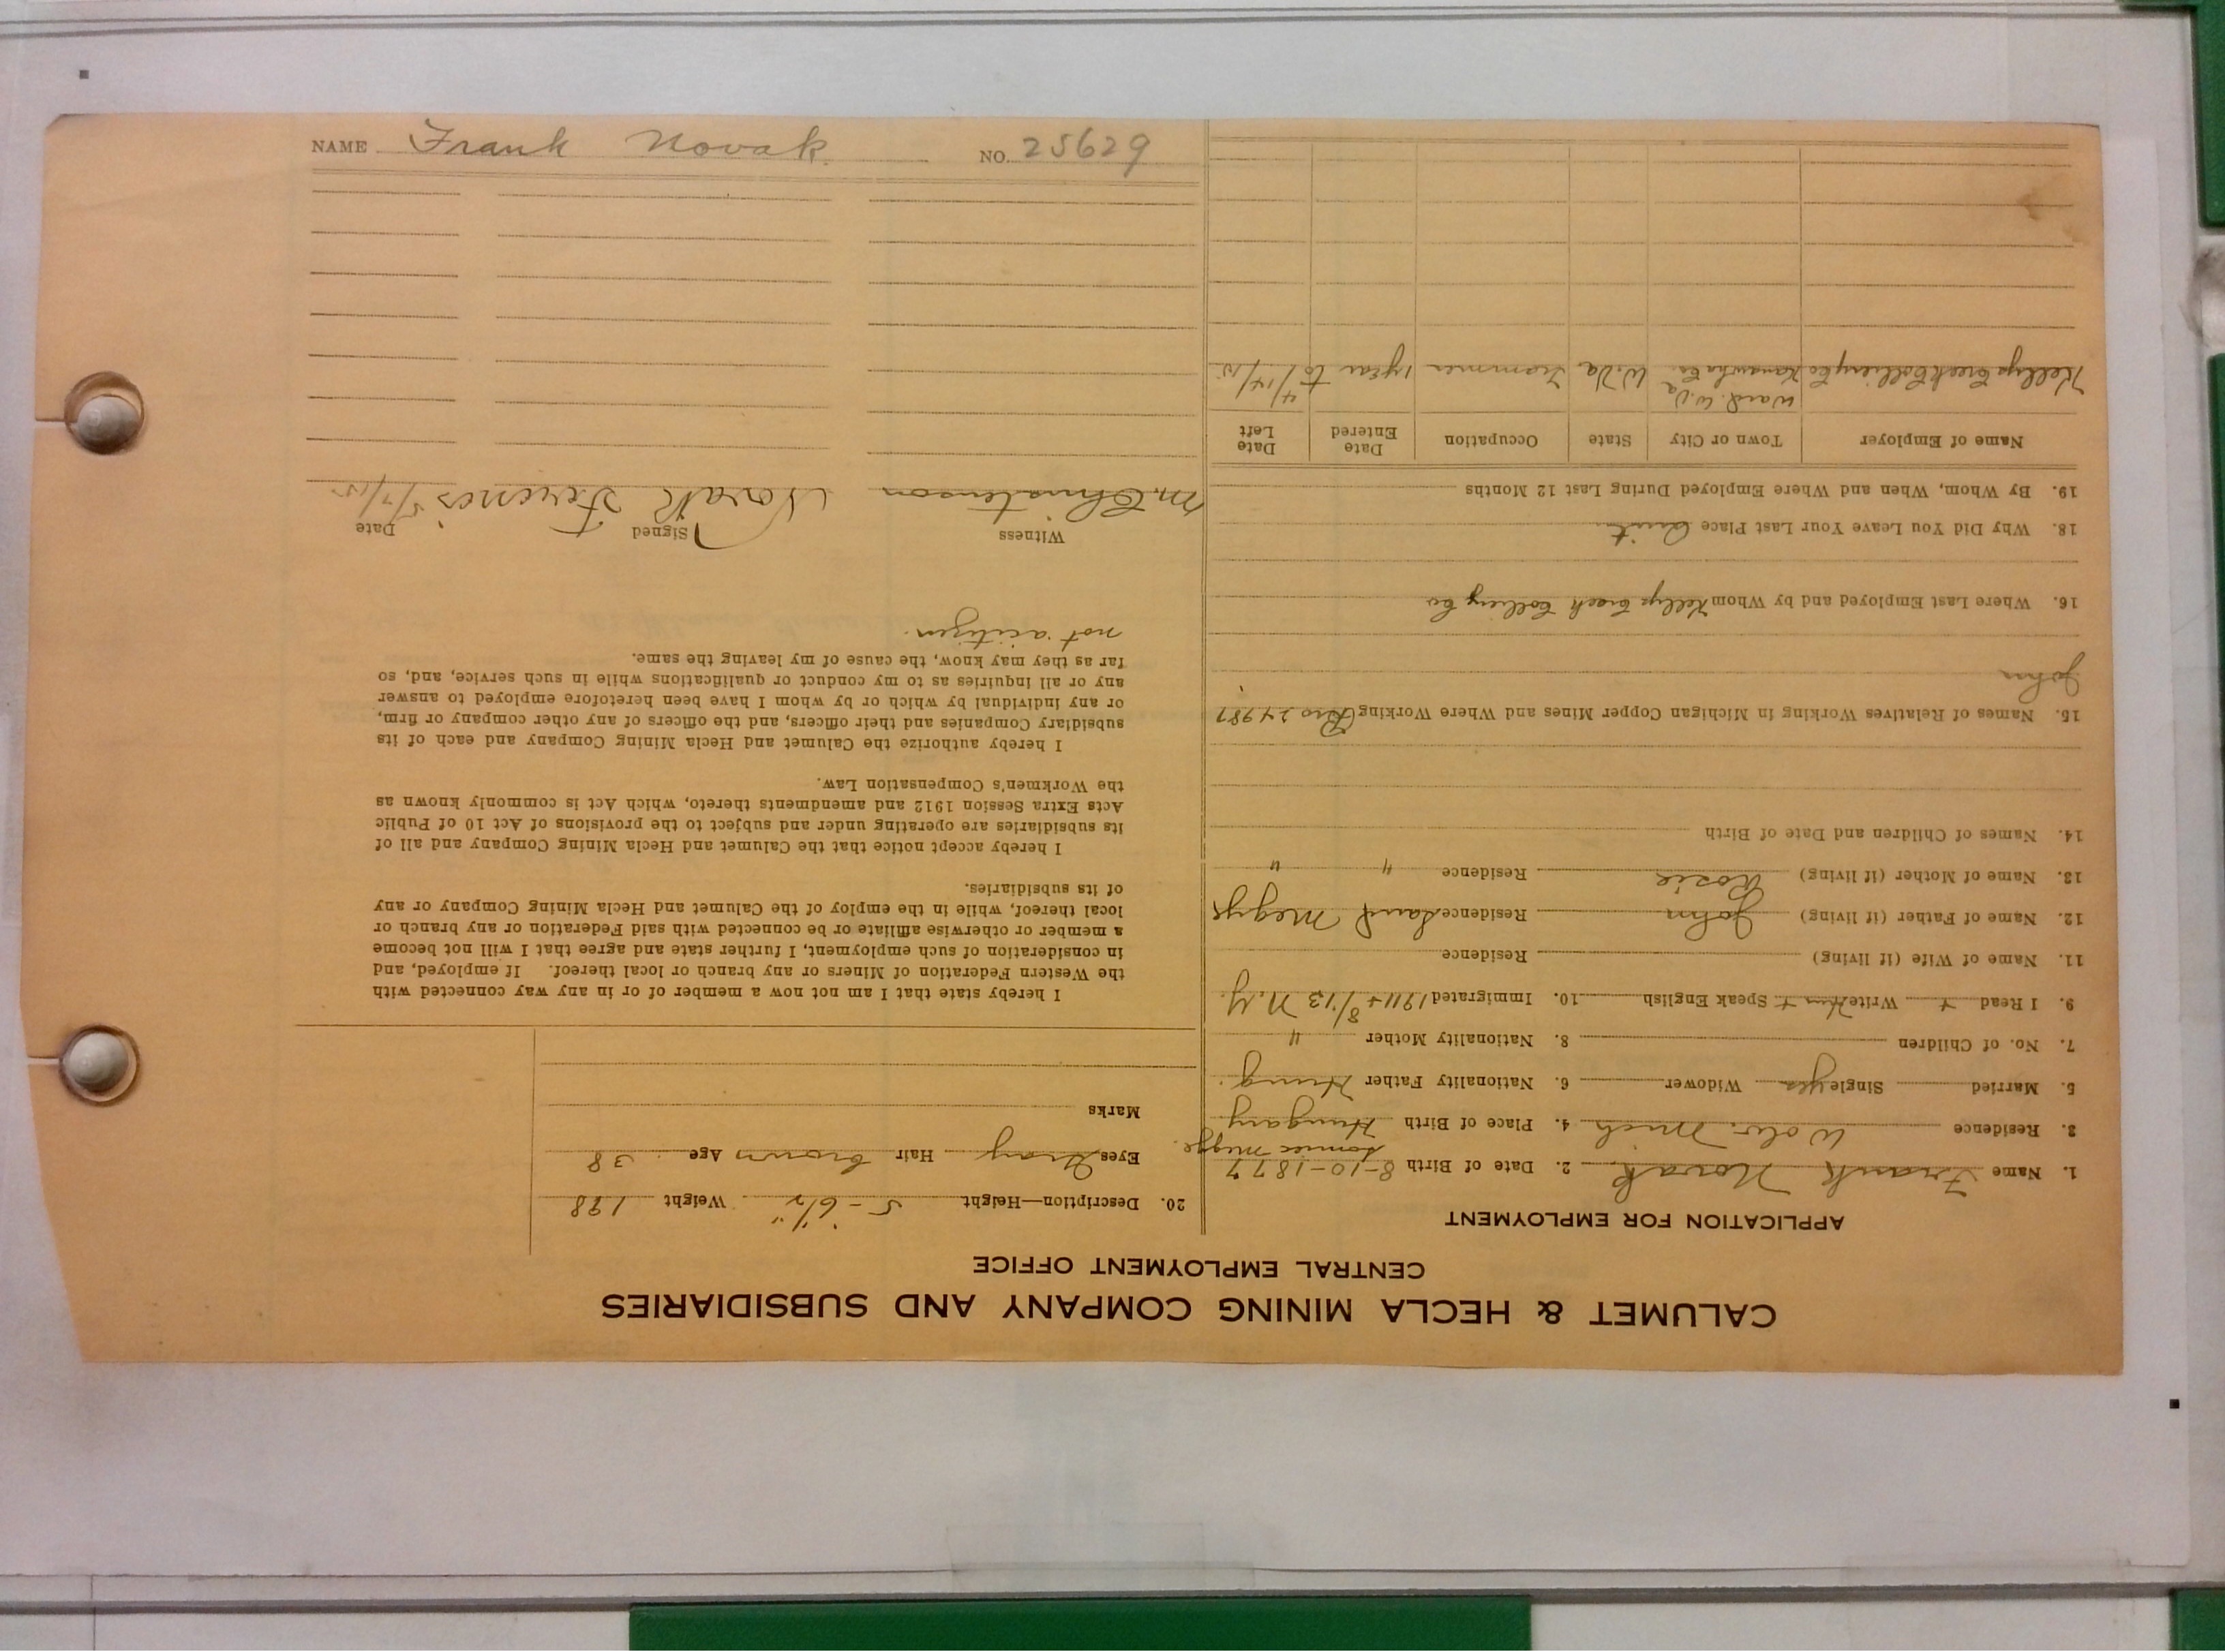 NAME Frank Novak NO. 25629
CALUMET & HECLA MINING COMPANY AND SUBSIDIARIES
CENTRAL EMPLOYMENT OFFICE
APPLICATION FOR EMPLOYMENT
1. Name Frank Novak 2. Date of Birth 8-10-1877
3. Residence Wolv. Mich 4. Place of Birth Hungary
5. Married Single yes Widower 6. Nationality Father Hung.
7. No. of Children 8. Nationality Mother "
9. I Read + Write Hun + Speak English 10. Immigrated 1911 + 8/13 N.Y.
11. Name of Wife (if living) Residence
12. Name of Father (if living) John Residence
13. Name of Mother (if living) Rosie Residence " "
14. Names of Children and Date of Birth
15. Names of Relatives Working in Michigan Copper Mines and Where Working Bro 24987
John
16. Where Last Employed and by Whom Kellys Creek Colliery Co
18. Why Did You Leave Your Last Place Quit
19. By Whom, When and Where Employed During Last 12 Months
Name of Employer Town or City State Occupation Date Entered Date Left
Ward. W.Va
Kellys Creek Colliery Co Kanawha Co. W.Va Trammer 1 year to 4/14/15
20. Description—Height 5-6½" Weight 198
Eyes Gray Hair brown Age 38
Marks
I hereby state that I am not now a member of or in any way connected with
the Western Federation of Miners or any branch or local thereof. If employed, and
in consideration of such employment, I further state and agree that I will not become
a member or otherwise affiliate or be connected with said Federation or any branch or
local thereof, while in the employ of the Calumet and Hecla Mining Company or any
of its subsidiaries.
I hereby accept notice that the Calumet and Hecla Mining Company and all of
its subsidiaries are operating under and subject to the provisions of Act 10 of Public
Acts Extra Session 1912 and amendments thereto, which Act is commonly known as
the Workmen's Compensation Law.
I hereby authorize the Calumet and Hecla Mining Company and each of its
subsidiary Companies and their officers, and the officers of any other company or firm,
or any individual by which or by whom I have been heretofore employed to answer
any or all inquiries as to my conduct or qualifications while in such service, and, so
far as they may know, the cause of my leaving the same.
not a citizen.
Witness Signed Date
M. Christenson Novak Ferencs 5/7/15